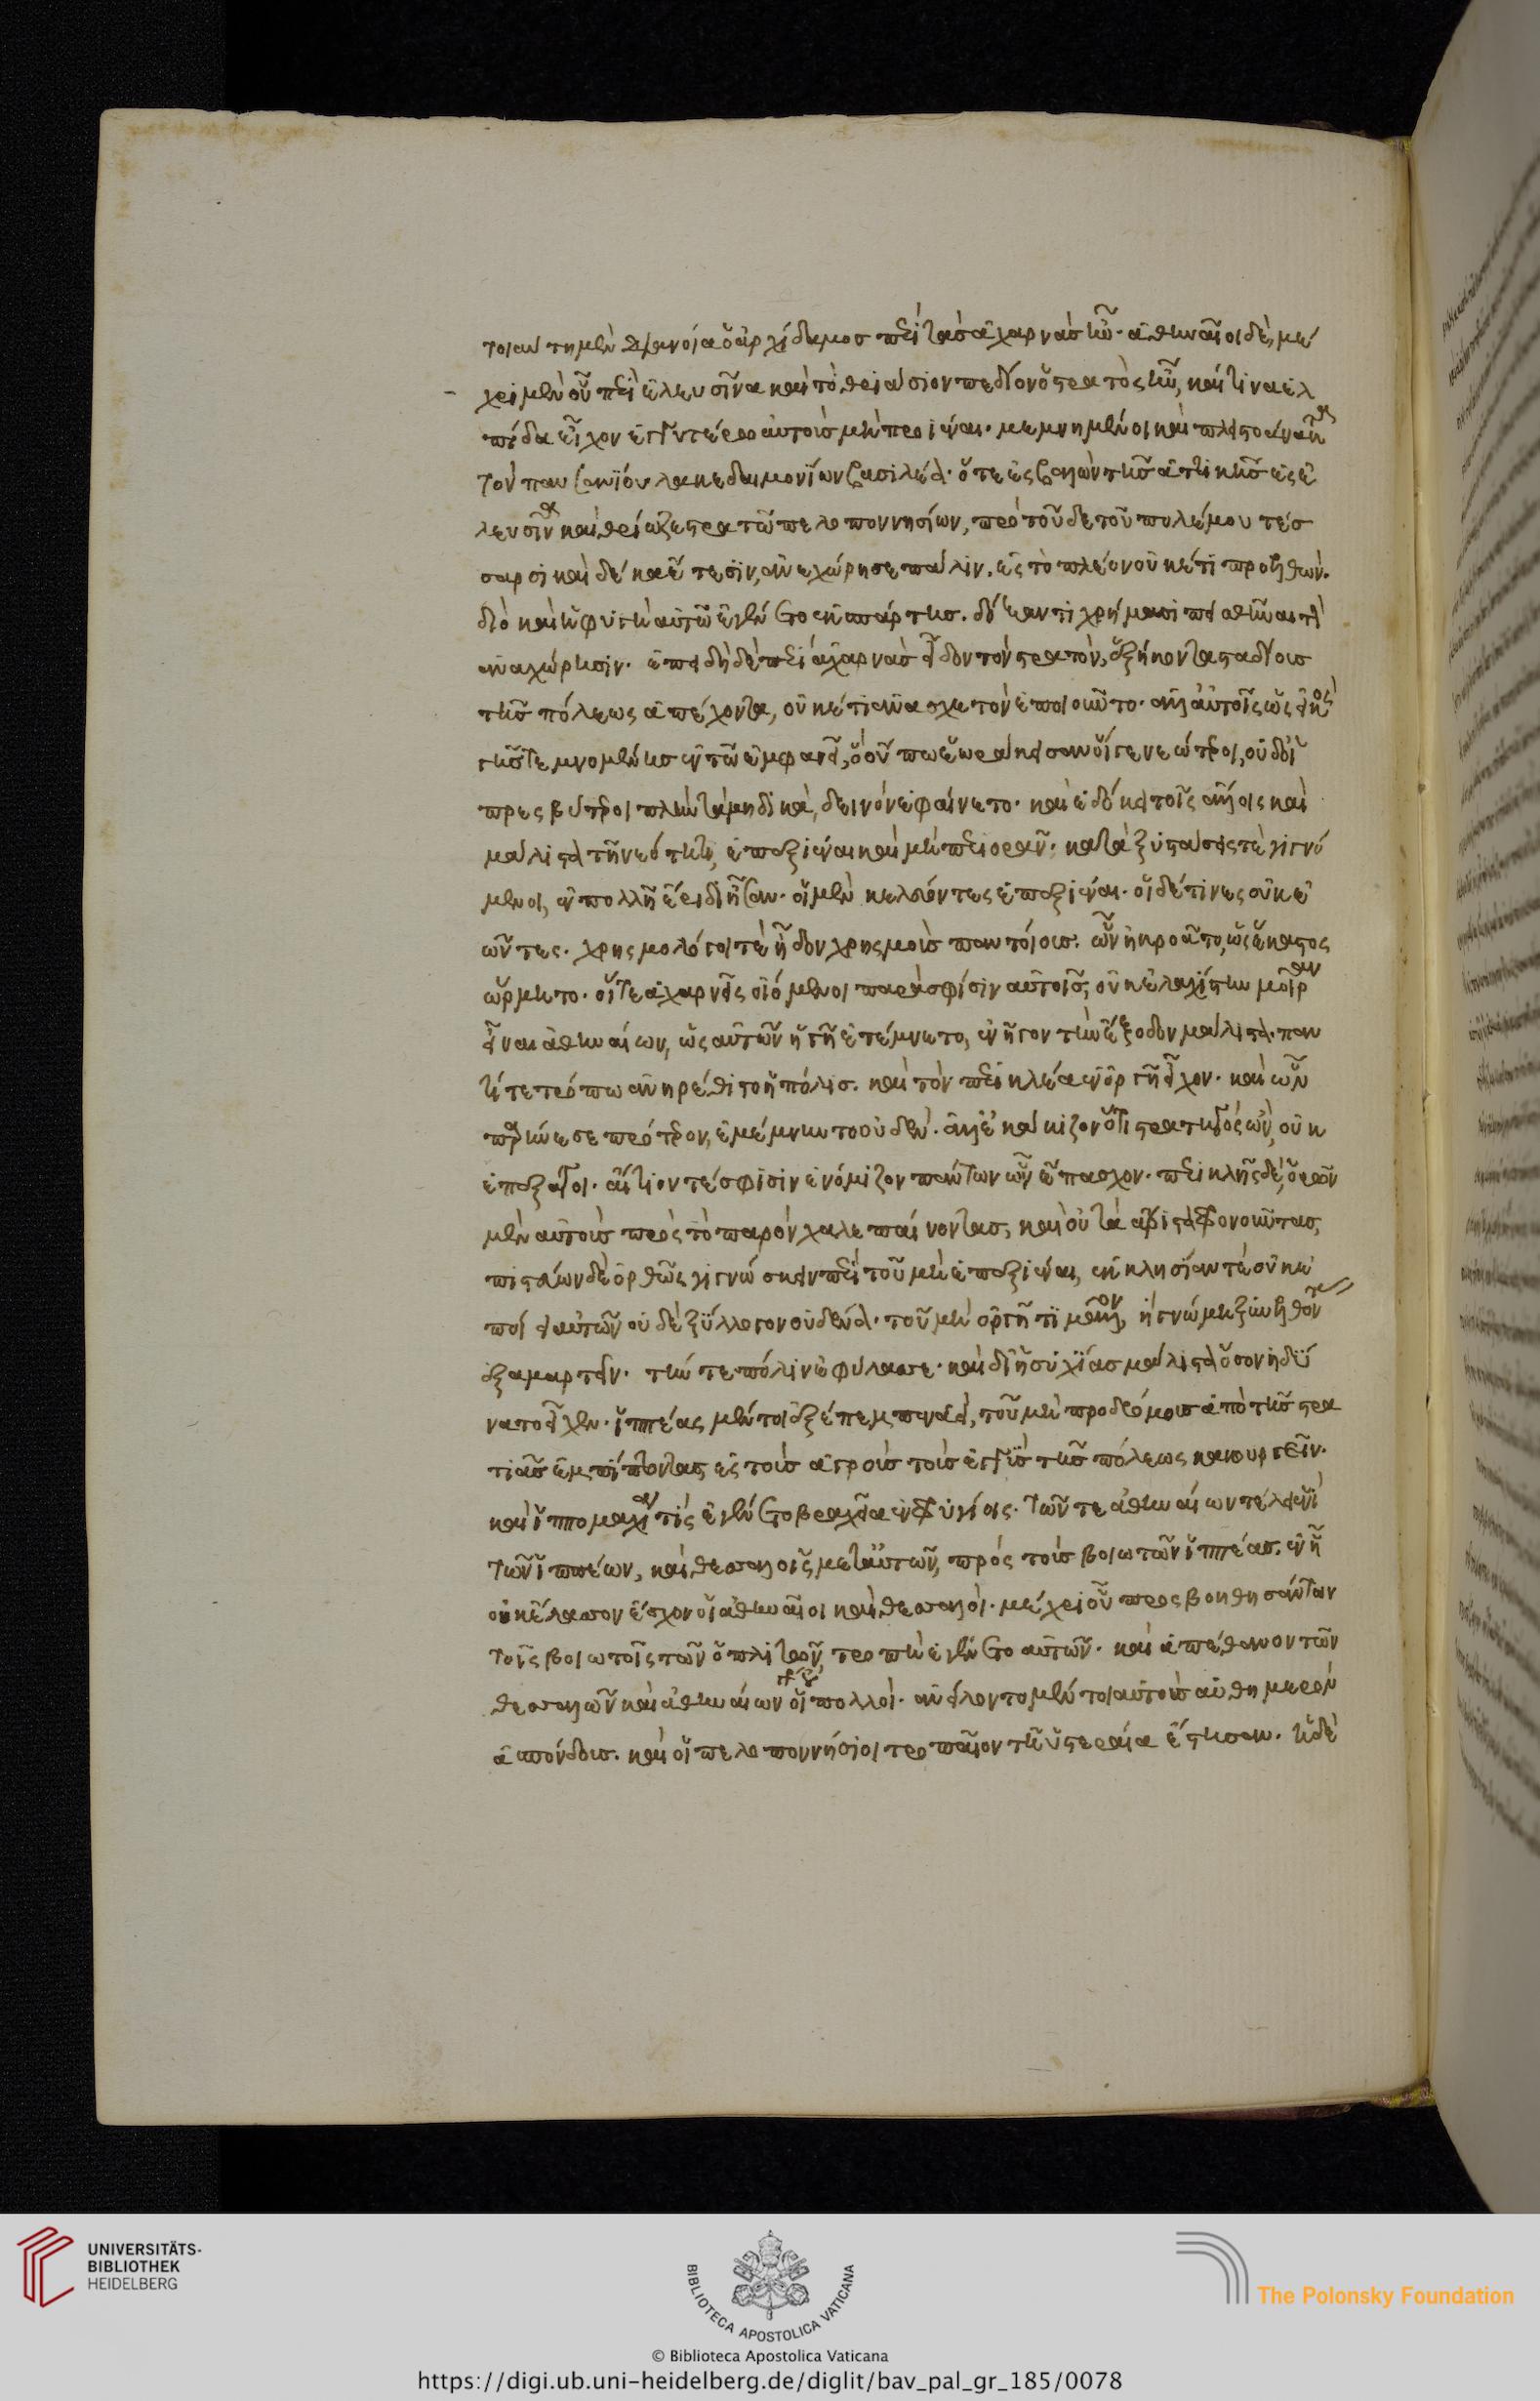 τοιαύτη μὲν διανοία ὁ ἀρχίδαμος περὶ τὰς ἀχαρνὰς ἦν· ἀθηναῖοι δὲ, μέ
χρι μὲν οὗ περὶ ἐλευσῖνα καὶ τὸ θριάσιον πεδίον ὁ στρατὸς ἦν, καί τινα ἐλ
πίδα εἶχον ἐγγυτέρω αὐτοὺς μὴ προϊέναι. μεμνημένοι καὶ πλειστοάνακτα
τὸν παυσανίου λακεδαιμονίων βασιλέα. ὅτε ἐσβαλὼν τῆς ἀττικῆς ἐς ἐ
λευσῖνα καὶ θρίαζε στρατῶ πελοποννησίων, πρὸ τοῦδε τοῦ πολέμου τέσ
σαρσι καὶ δέκα ἔτεσιν, ἀνεχώρησε πάλιν. ἐς τὸ πλέον οὐκέτι προελθών.
διὸ καὶ ἡ φυγὴ αὐτῶ ἐγένετο ἐκ σπάρτης. δόξαντι χρήμασι πεισθῆναι τὴν
ἀναχώρησιν. ἐπειδὴ δὲ περὶ ἀχαρνὰς εἶδον τὸν στρατὸν, ἑξήκοντα σταδίους
τῆς πόλεως ἀπέχοντα, οὐκέτι ἀνασχετὸν ἐποιοῦντο. ἀλλ' αὐτοῖς ὡς εἰκὸς
γῆς τεμνομένης ἐν τῶ ἐμφανεῖ, ὃ οὔπω ἑωράκεισαν οἵ γε νεώτεροι, οὐδ' οἱ
πρεσβύτεροι πλὴν τὰ μηδικὰ, δεινὸν ἐφαίνετο. καὶ ἐδόκει τοῖς ἄλλοις καὶ
μάλιστα τῆ νεότητι, ἐπεξιέναι καὶ μὴ περιορᾶν. κατὰ ξυστάσεις τὲ γιγνό
μενοι, ἐν πολλῆ ἔριδι ἦσαν. οἱ μὲν κελεύοντες ἐπεξιέναι. οἱ δέ τινες οὐκ ἐ
ῶντες. χρησμολόγοι τὲ ἦδον χρησμοὺς παντοίους. ὧν ἠκροᾶτο, ὡς ἕκαστος
ὥρμητο. οἵ τε ἀχαρνεῖς οἰόμενοι παρὰ σφίσιν αὐτοῖς, οὐκ ἐλαχίστην μοῖραν
εἶναι ἀθηναίων, ὡς αὐτῶν ἡ γῆ ἐτέμνετο, ἐνῆγον τὴν ἔξοδον μάλιστα. παν
τί τε τρόπω ἀνηρέθιστο ἡ πόλις. καὶ τὸν περικλέα ἐν ὀργῆ εἶχον. καὶ ὧν
παρήνεσε πρότερον, ἐμέμνηντο οὐδέν. ἀλλ' ἐκάκιζον ὅτι στρατηγὸς ὢν, οὐκ
ἐπεξάγοι. αἴτιόν τέ σφισιν ἐνόμιζον πάντων ὧν ἔπασχον. περικλῆς δὲ, ὁρῶν
μὲν αὐτοὺς πρὸς τὸ παρὸν χαλεπαίνοντας, καὶ οὐ τὰ ἄριστα φρονοῦντας,
πιστεύων δὲ ὀρθῶς γιγνώσκειν περὶ τοῦ μὴ ἐπεξιέναι, ἐκκλησίαν τὲ οὐκ ἐ
ποίει αὐτῶν οὐδὲ ξύλλογον οὐδένα. τοῦ μὴ ὀργῆ τι μᾶλλον, ἢ γνώμη ξυνελθόντας
ἐξαμαρτεῖν. τήν τε πόλιν ἐφύλασσε. καὶ δι' ἡσυχίας μάλιστα ὅσον ἠδύ
νατο εἶχεν. ἱππέας μέντοι ἐξέπεμπεν ἀεὶ, τοῦ μὴ προδρόμους ἀπὸ τῆς στρα
τιᾶς ἐμπίπτοντας ἐς τοὺς ἀγροὺς τοὺς ἐγγὺς τῆς πόλεως κακουργεῖν.
καὶ ἱππομαχία τίς ἐγένετο βραχεῖα ἐν φρυγίοις. τῶν τε ἀθηναίων τέλει ἑνὶ
τῶν ἱππέων, καὶ θεσσαλοῖς μετ' αὐτῶν, πρὸς τοὺς βοιωτῶν ἱππέας. ἐν ἧ
οὐκ ἔλασσον ἔσχον οἱ ἀθηναῖοι καὶ θεσσαλοὶ. μέχρι οὗ προσβοηθησάντων
τοῖς βοιωτοῖς τῶν ὁπλιτῶν, τροπὴ ἐγένετο αὐτῶν. καὶ ἀπέθανον τῶν
θεσσαλῶν καὶ ἀθηναίων οὐ πολλοί. ἀνείλοντο μέντοι αὐτοὺς αὐθημερὸν
ἀσπόνδους. καὶ οἱ πελοποννήσιοι τροπαῖον τῆ ὑστεραία ἔστησαν. ἡ δὲ
UNIVERSITÄTS-
BIBLIOTHEK
HEIDELBERG
BIBLIOTECA APOSTOLICA VATICANA
The Polonsky Foundation
© Biblioteca Apostolica Vaticana
https://digi.ub.uni-heidelberg.de/diglit/bav_pal_gr_185/0078